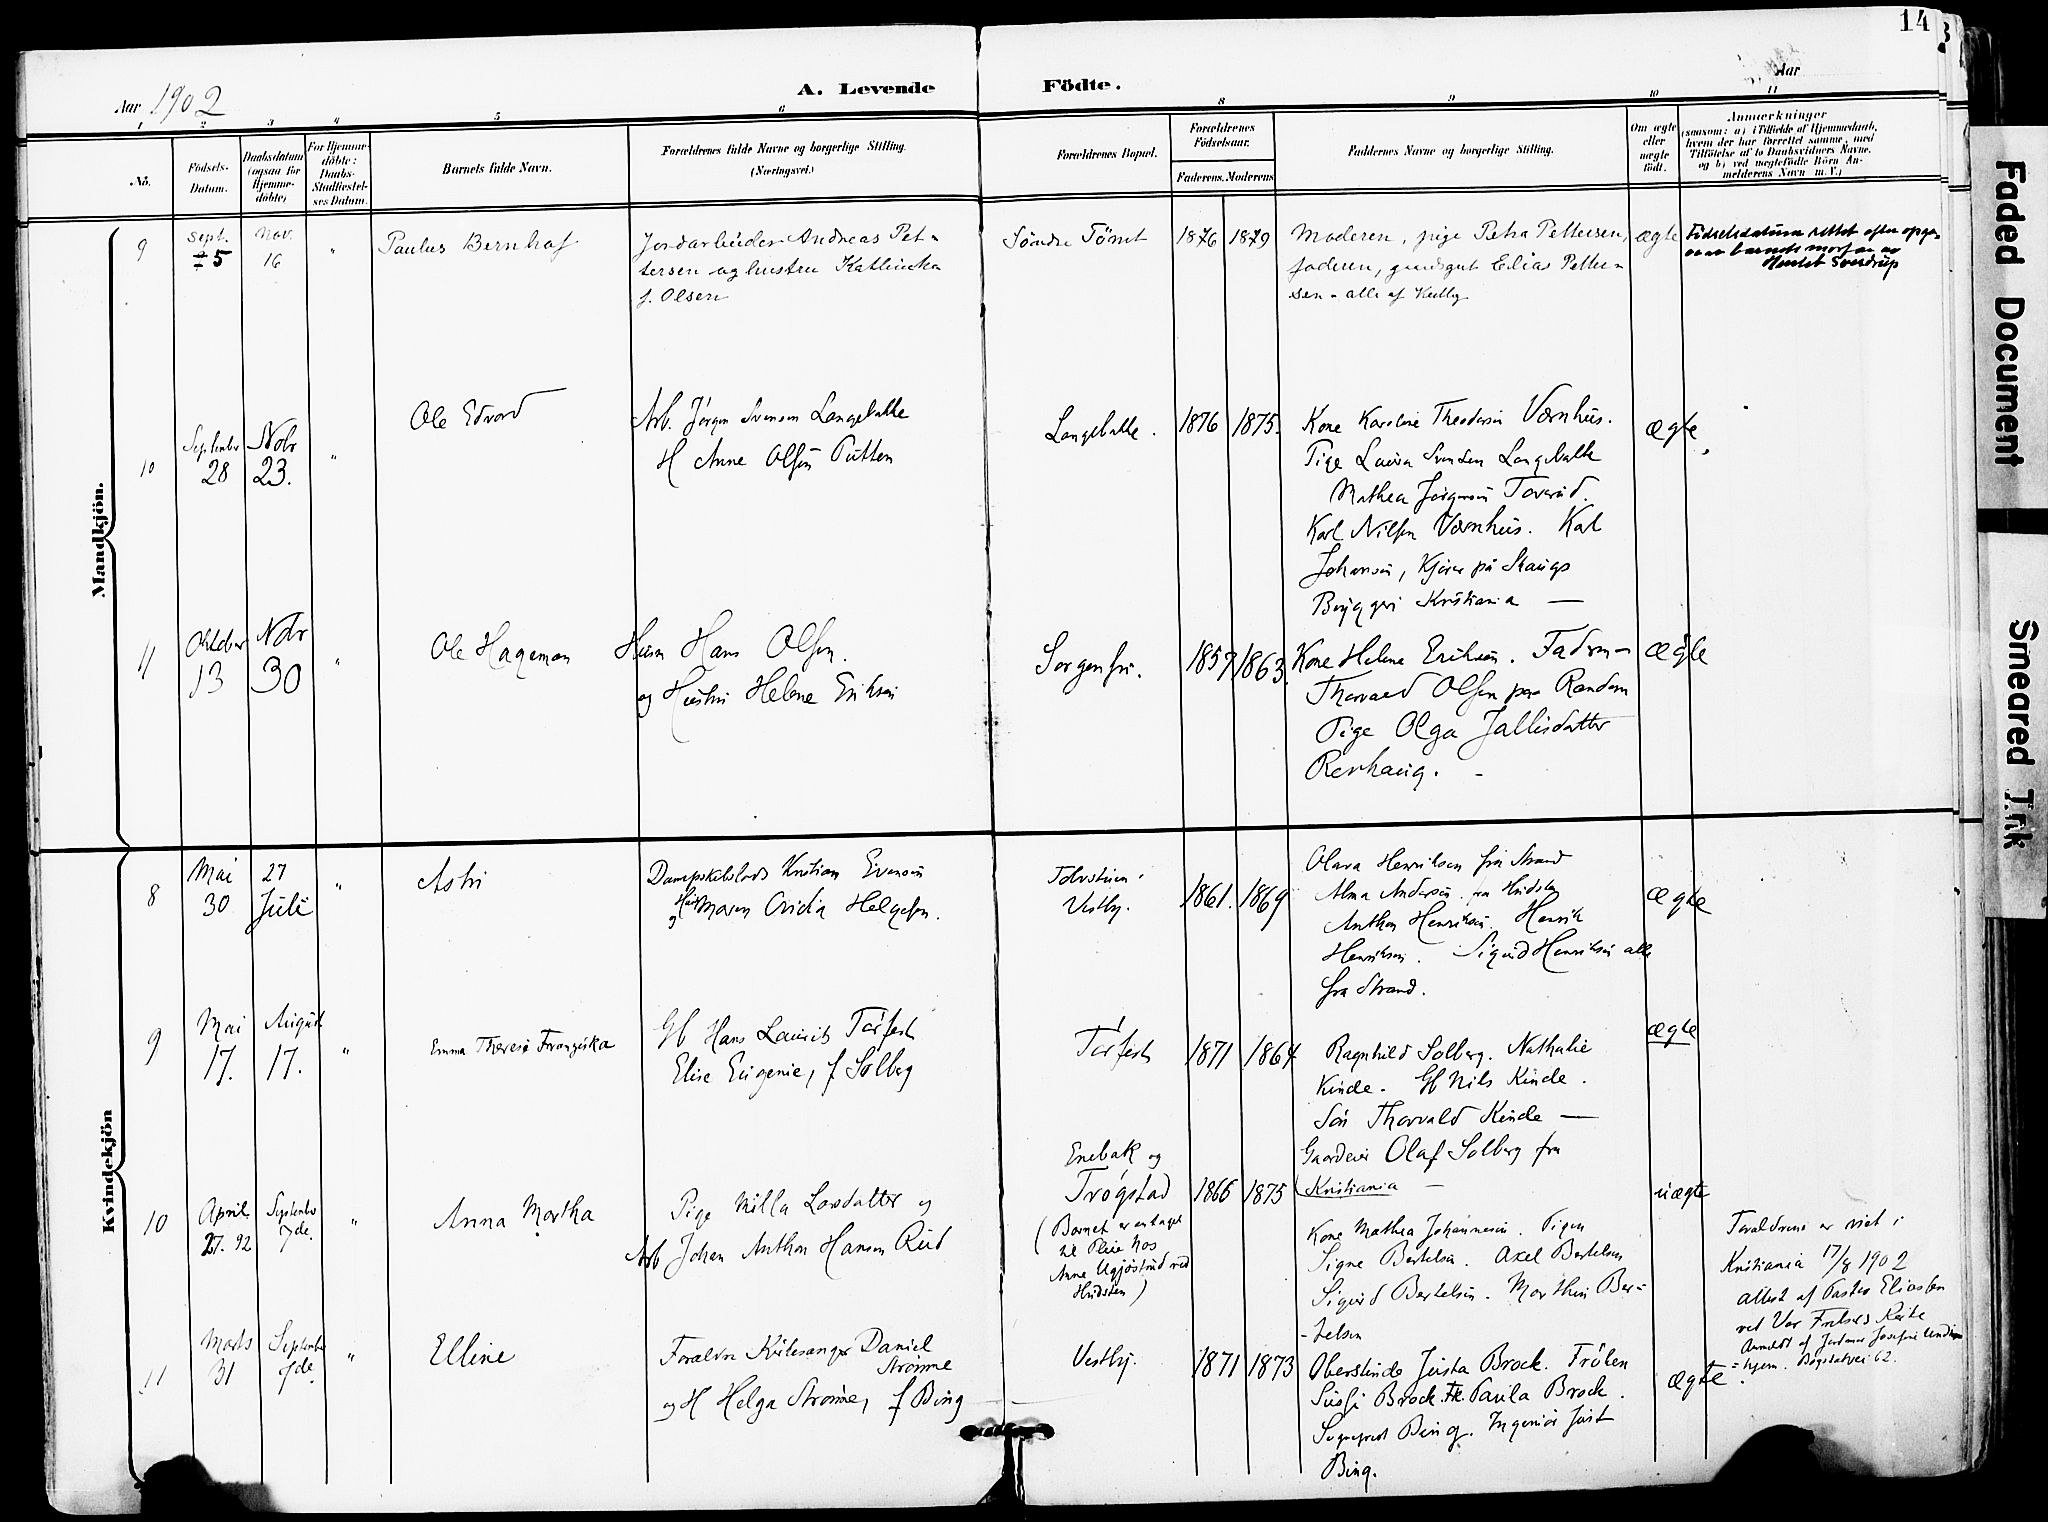 14
Aar 1902
A. Levende Födte.
Aar
1 2 3 4 5 6 8 9 10 11
No.
Födsels-Datum.
Daabsdatum (ogsaa for Hjemme-döbte)
For Hjemme-döbte: Daabs-Stadfæstel-ses Datum.
Barnets fulde Navn.
Forældrenes fulde Navne og borgerlige Stilling.
(Næringsvei.)
Forældrenes Bopæl.
Forældrenes Födselsaar.
Faderens. Moderens
Faddernes Navne og borgerlige Stilling.
Om ægte eller uægte födt.
Anmærkninger
(saasom: a) i Tilfælde af Hjemmedaab,
hvem der har forrettet samme, med
Tilföielse af to Daabsvidners Navne.
og b) ved uægtefödte Börn An-
melderens Navn m. V.)
Mandkjön.
9 Sept. 5 Nov. 16 " Paulus Bernhof
Jordarbeider Andreas Pet-
tersen og hustru Kathinka
f. Olsen
Söndre Tömt 1876 1879
Moderen, pige Petra Pettersen,
faderen, gaardgut Elias Petter-
sen - alle af
ægte
Födselsdatum rettet efter opga-
ve av barnets morfar av
Sverdrup
10 September 28 Nobr 23. " Ole Edvard
Arb. Jörgen Svensen Langebakke
H Anne Olsen Putten
Langebakke. 1876 1875.
Kone Karoline Theodorsen Værnhus.
Pige Laura Svensen Langebakke
Mathea Jörgensen Toverud.
Karl Nilsen Værnhus. Karl
Johansen, Kjörer på Skaugs
Bryggeri Kristiania —
ægte
11 Oktober 13 Nobr 30 " Ole Hageman
Husm Hans Olsen.
og Hustru Helene Eriksen
Sorgenfri. 1857 1863.
Kone Helene Eriksen. Fadren -
Thorvald Olsen paa Randem
Pige Olga Jallisdatter
Revhaug. -
ægte
Kvindekjön
8 Mai 30 27 Juli " Astri
Dampskibslods Kristian Evensen
og Hus Maren Ovidia Helgesen.
Vestby. 1861. 1869
Olava Henriksen fra Strand
Alma Andersen fra Hvidsten
Anthon Henriksen. Henrik
Henriksen. Sigurd Henriksen alle
fra Strand.
ægte
9 Mai 17. August 17. " Emma Therese Franziska
Gb Hans Laurits Torfest
Elise Eugenie, f Solberg
Torfest 1871 1864
Ragnhild Solberg. Nathalie
Kinde. Gb Nils Kinde.
Sön Thorvald Kinde —
Gaardeier Olaf Solberg fra
Kristiania —
ægte
10 April 27. 92 September 7de. " Anna Martha
Pige Milla Larsdatter og
Arb Johan Anthon Hansen Rud
Enebak og
Trögstad
(Barnet er antaget
til Pleie hos
Anne Ugjöstrud ved
Hvidsten)
1866 1875
Kone Mathea Johannesen. Pigen
Signe Bertelsen. Axel Bertelsen
Sigurd Bertelsen. Marthin Ber-
-telsen
uægte
Forældrene er viet i
Kristiania 17/8 1902
attest af Pastor Eliassen
ved Vor Frelsers Kirke
Anmeldt af Jordmor Josefine
hjem. Bogstadvei 62.
11 Marts 31 September 7de " Elline
Forældre Kirkesanger Daniel
Strömme
og H Helga Strömme, f Bing
Vestby. 1871 1873
Oberstinde Justa Brock. Fröken
Sussi Brock. Fr. Paula Brock.
Sogneprest Bing. Ingeniör Just
Bing.
ægte
Faded Document
Smeared Ink